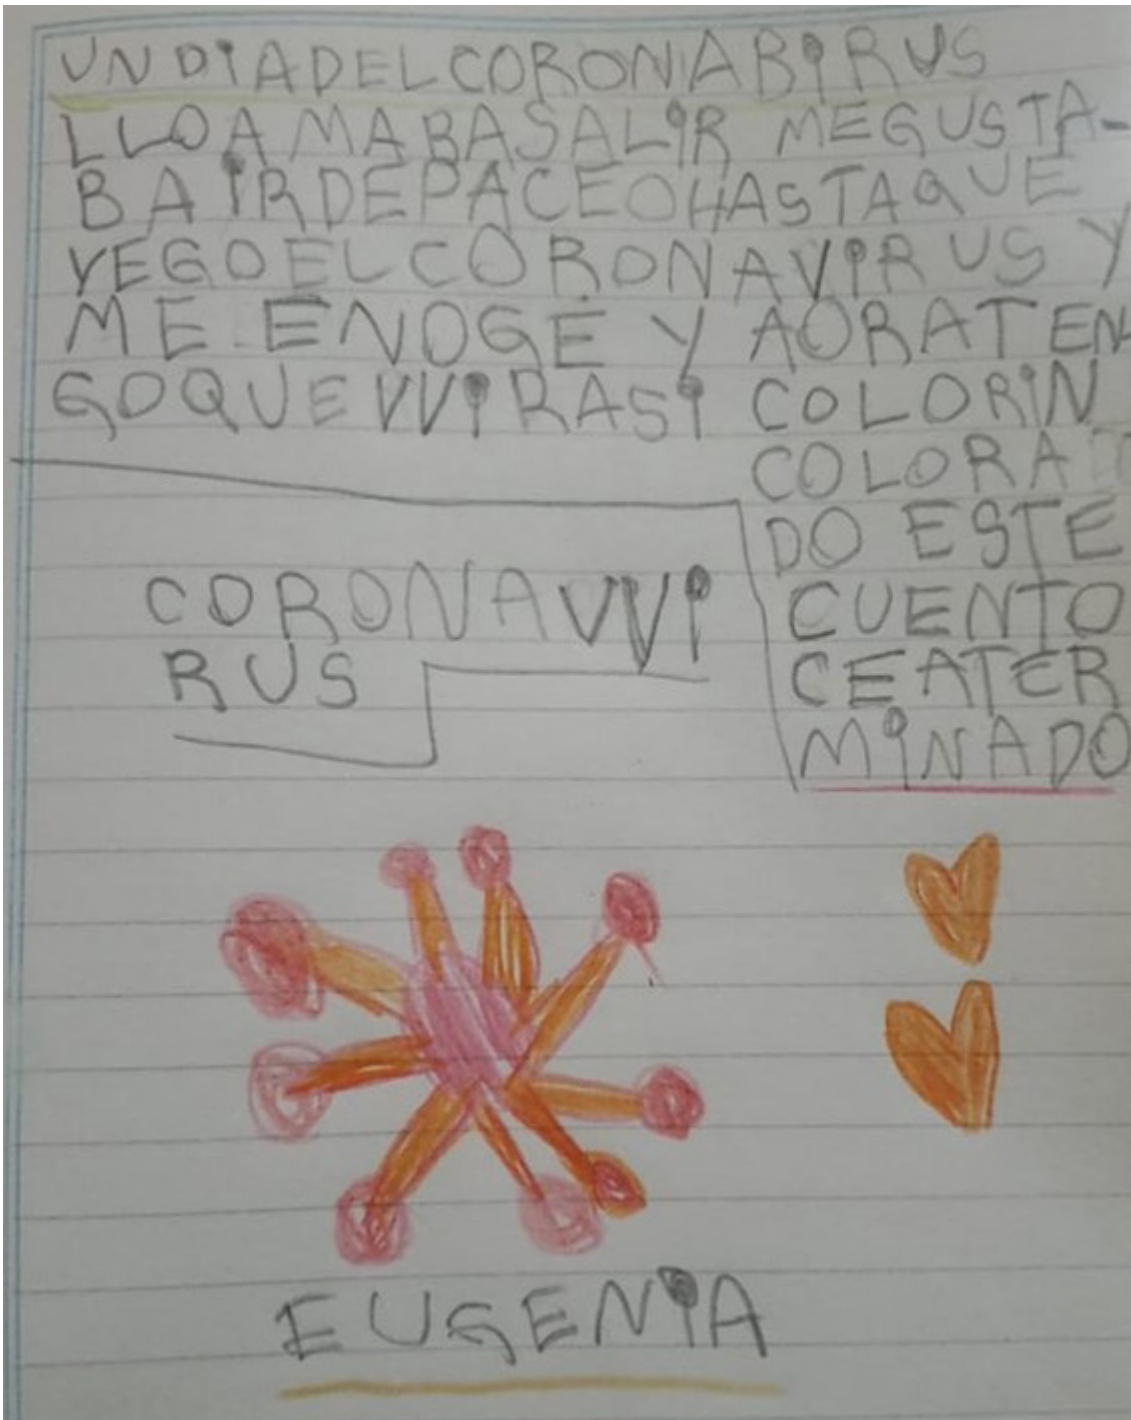 UN DiA DEL CORONABiRUS
LLO AMABA SALiR ME GUSTA-
BA iR DE PACEO HASTA QUE
YEGO EL CORONAViRUS Y
ME ENOGE Y AORA TEN
GO QUE VViR ASi COLORiN
COLORA
DO ESTE
CUENTO
CEATER
MiNADO
CORONAVVi
RUS
EUGENiA